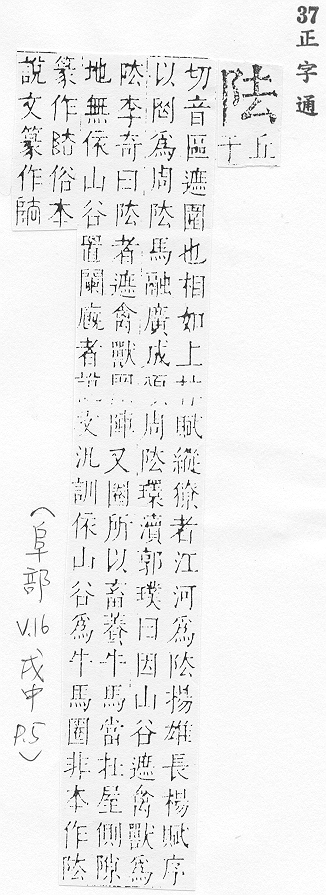 37正字通
阹
丘于
切音區遮圍也相如上林賦縱獠者江河爲阹揚雄長楊賦序
以罔爲周阹馬融廣成頌周阹環瀆郭璞曰因山谷遮禽獸爲
阹李奇曰阹者遮禽獸圍陣又圈所以畜養牛馬當在屋側隙
地無依山谷置闌廄者說文汎訓依山谷爲牛馬圈非本作阹
篆作俗本
說文篆作
(阜部 V.16 戌中 P.5)